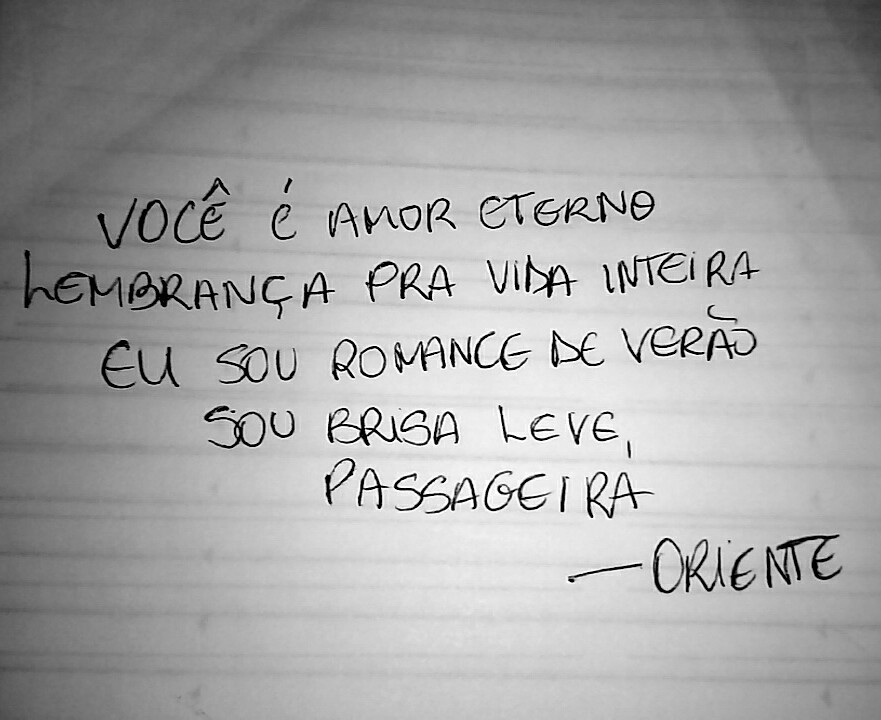 VOCÊ É AMOR ETERNO
LEMBRANÇA PRA VIDA INTEIRA
EU SOU ROMANCE DE VERÃO
SOU BRISA LEVE,
PASSAGEIRA
— ORIENTE